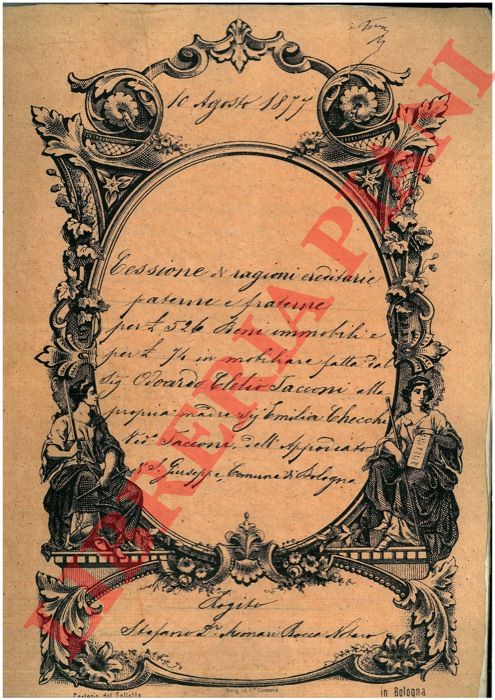 10 Agosto 1877
Cessione di ragioni ereditarie
paterne e fraterne
per £ 526 Beni immobili e
per £ 74 in mobiliare fatta dal
Sig Odoardo Clelio Sacconi alla
propria madre Sig Emilia Checchi
Ved. Sacconi, dell'Appodiato
S. Giuseppe, Comune di Bologna
Rogito
Stefano Dr. Rocca Notaro
in Bologna
LIBRERIA PIANI